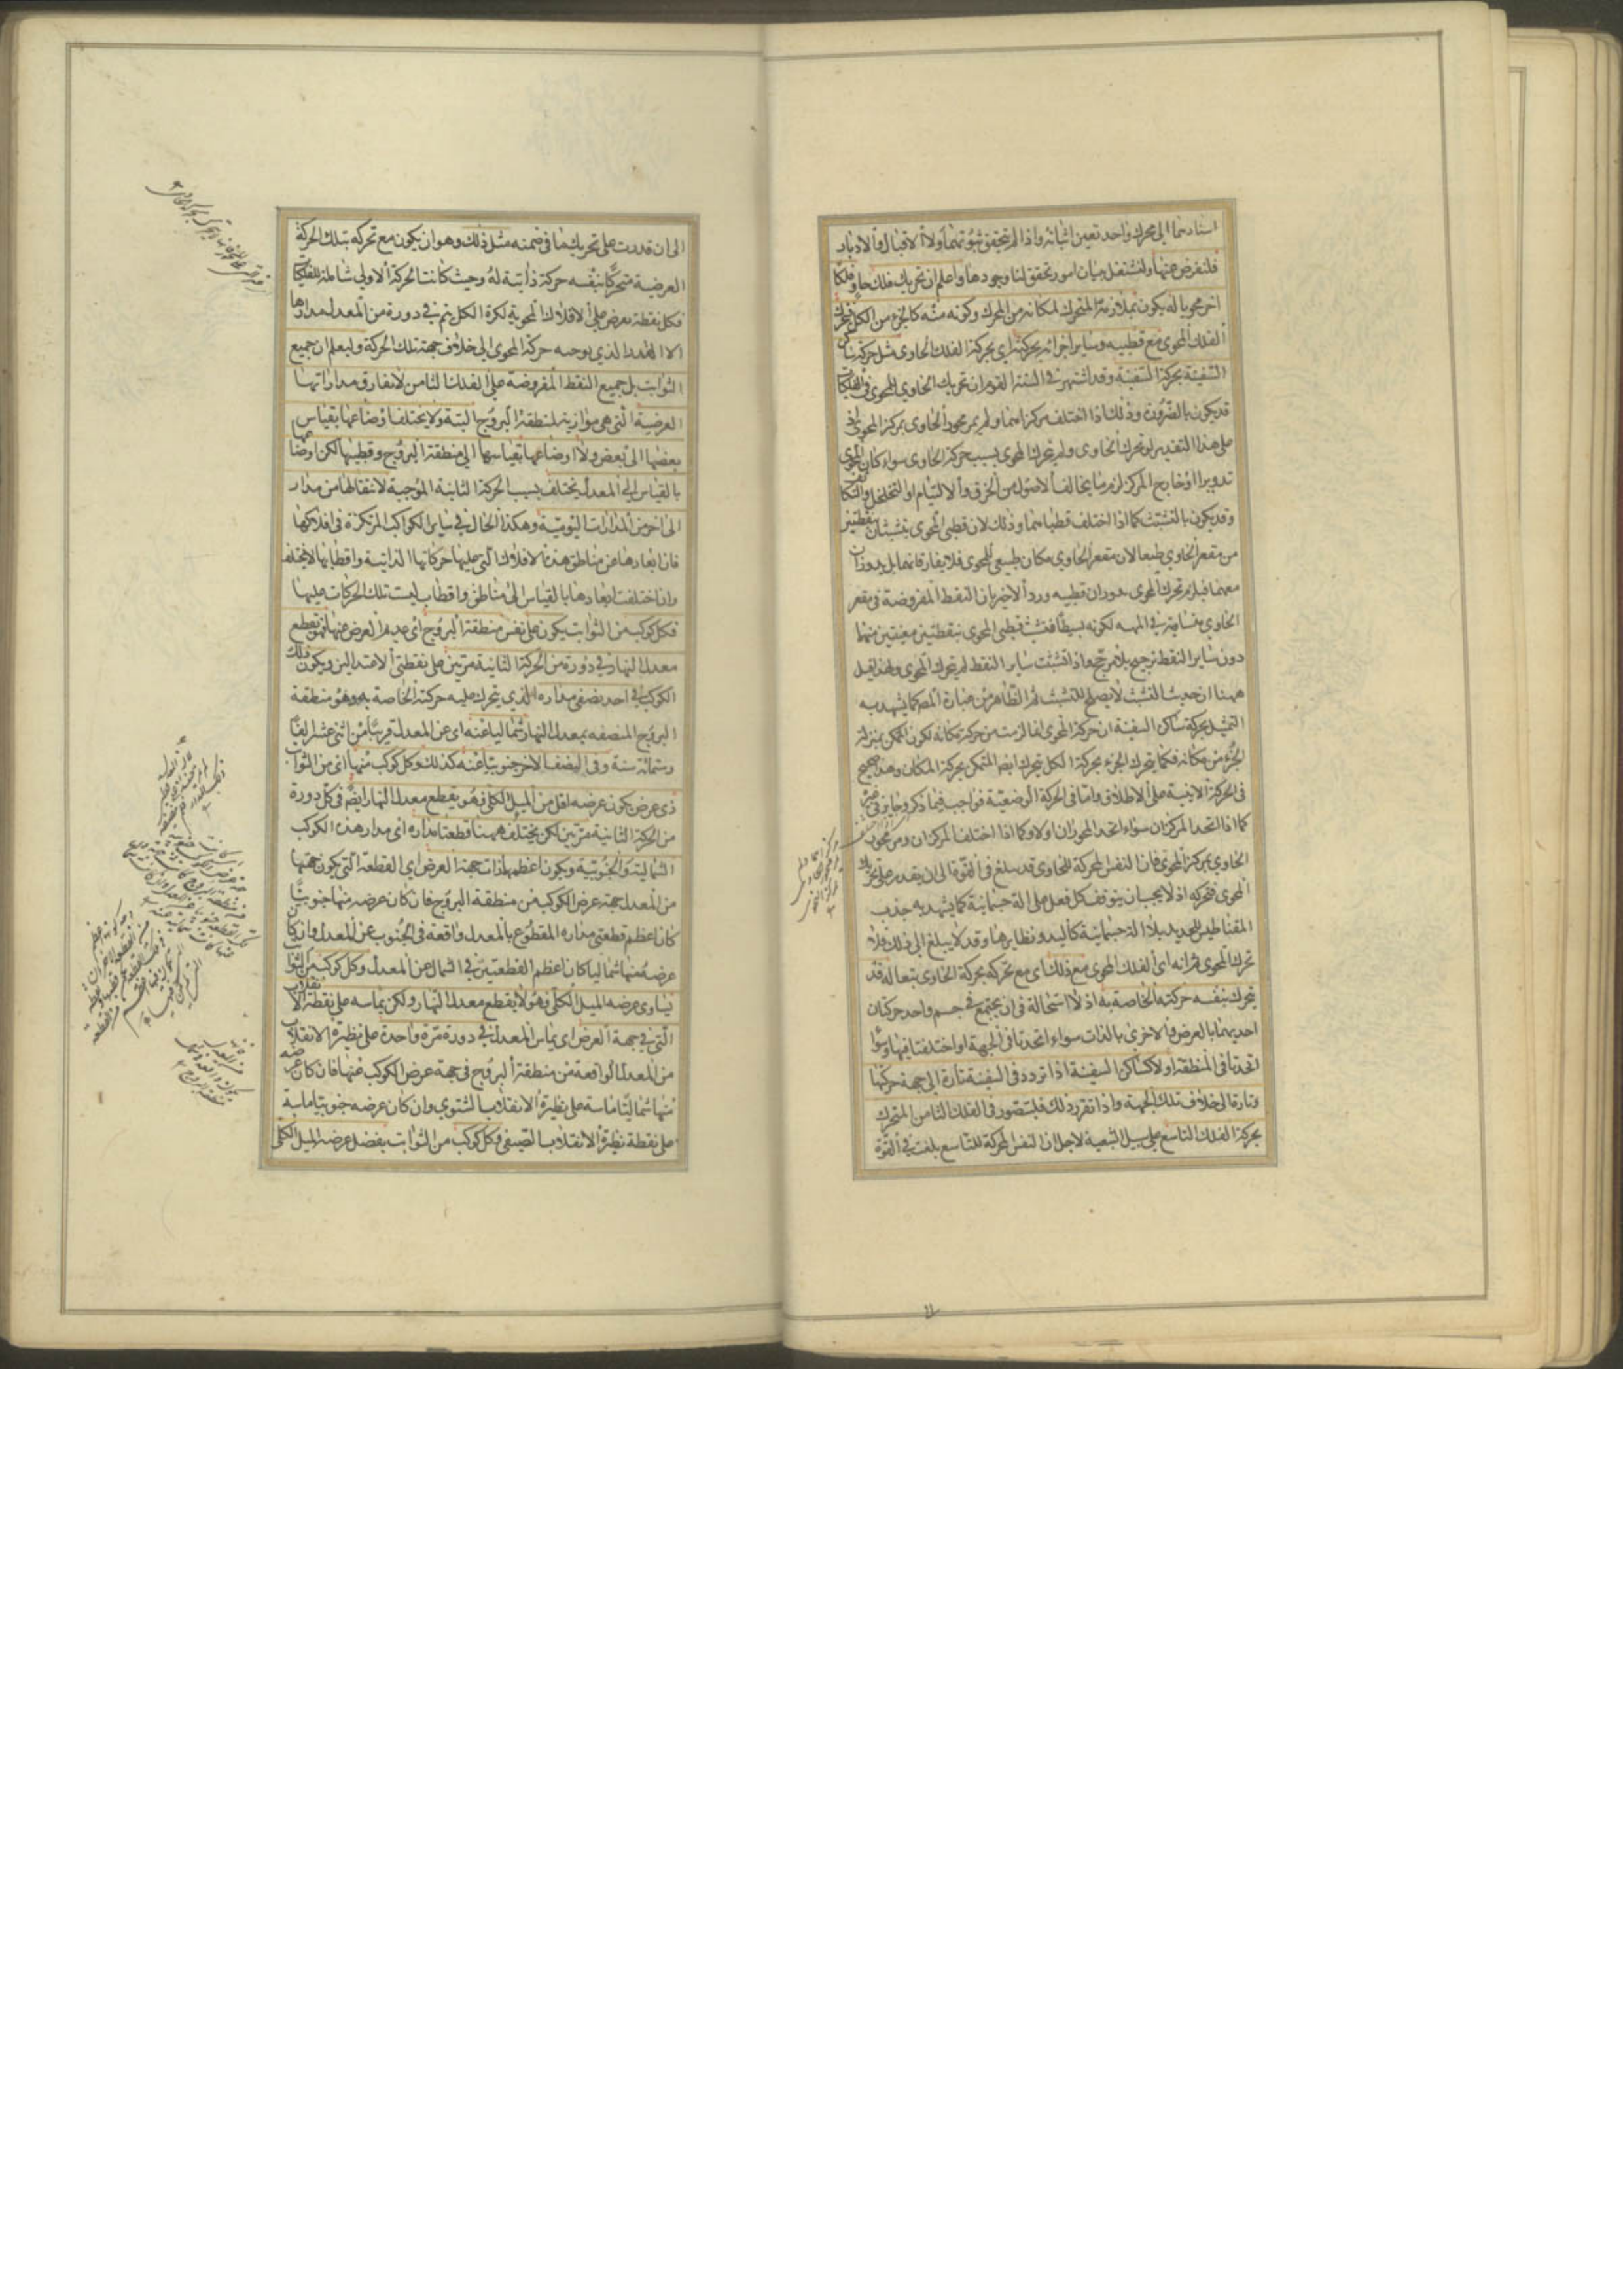 استادهما الى محرك واحد تعين اثباته واذا لم يتحقق ثبوتهما ولا الاقبال والادبار
فلنعرض عنها ولنشتغل ببيان امور تحقق لنا وجودها واعلم ان تحريك فلك حاو فلكا
اخر محويا له يكون بملازمة المتحرك لمكانه من المحرك وكونه منه كالجزء من الكل فيحرك
الفلك المحوى مع قطبيه وساير اجزائه بحركته اى بحركة الفلك الحاوى مثل حركة ساكن
السفينة بحركة السفينة وقد اشتهر فى السنة القوم ان تحريك الحاوى للمحوى فى الفلكيات
قد يكون بالضرورة وذلك اذا اختلف مركزاهما ولم يمر محور الحاوى بمركز المحوى اذ
على هذا التقدير لو تحرك الحاوى ولم يتحرك المحوى بسبب حركة الحاوى سواء كان المحوى
تدويرا او خارج المركز لزم ما يخالف الاصول من الخرق والالتيام او التخلخل والتكاثف
وقد يكون بالتشبث كما اذا اختلف قطباهما وذلك لان قطبى المحوى يتشبثان بنقطتين
من مقعر الحاوى طبعا لان مقعر الحاوى مكان طبيعى للمحوى فلا يفارقانهما بل يدوران
معهما فيلزم تحرك المحوى بدوران قطبيه ورد الاخير بان النقط المفروضة فى مقعر
الحاوى متساوية فى المهية لكونه بسيطا فتشبث قطبى المحوى بنقطتين معينتين منها
دون ساير النقط ترجيح بلا مرجح واذا تشبثت ساير النقط لم يتحرك المحوى ولهذا قيل
ههنا ان حديث التشبث لا يصلح للتشبث ثم الظاهر من عبارة المصه كما يشهد به
التمثيل بحركة ساكن السفينة ان حركة المحوى انما لزمت من حركة مكانه لكون المتمكن بمنزلة
الجزء من مكانه فكما يتحرك الجزء بحركة الكل يتحرك ايضا المتمكن بحركة المكان وهو صحيح
فى الحركة الاينية على الاطلاق واما فى الحركة الوضعية فواجب فيما ذكر وجايز فى غيره
كما اذا اتحد المركزان سواء اتحد المحوران اولا وكما اذا اختلف المركزان ومر محور
الحاوى بمركز المحوى فان النفس المحركة للحاوى قد يبلغ فى القوة الى ان يقدر على تحريك
المحوى فتحركه اذ لا يجب ان يتوقف كل فعل على الة جسمانية كما يشهد به جذب
المقناطيس للحديد بلا الة جسمانية كاليد ونظايرها وقد لا يبلغ الى ذلك فلا
تحرك المحوى ثم انه اى الفلك المحوى مع ذلك اى مع تحركه بحركة الحاوى تبعا له قد
يتحرك بنفسه حركته الخاصة به اذ لا استحالة فى ان يجتمع فى جسم واحد حركتان
احديهما بالعرض والاخرى بالذات سواء اتحدتا فى الجهة او اختلفتا فيها وسواء
اتحدتا فى المنطقة اولا كساكن السفينة اذا تردد فى السفينة تارة الى جهة حركتها
وتارة الى خلاف تلك الجهة واذا تقرر ذلك فليتصور فى الفلك الثامن المتحرك
بحركة الفلك التاسع على سبيل التبعية لاجل ان النفس المحركة للتاسع بلغت فى القوة
الى ان قدرت على تحريك ما فى ضمنه مثل ذلك وهو ان يكون مع تحركه بتلك الحركة
العرضية متحركا بنفسه حركة ذاتية له وحيث كانت الحركة الاولى شاملة للفلكيات
فكل نقطة تعرض على الافلاك المحوية لكرة الكل يتم فى دورة من المعدل مدارها
الا المقدار الذى يوجبه حركة المحوى الى خلاف جهة تلك الحركة وليعلم ان جميع
الثوابت بل جميع النقط المفروضة على الفلك الثامن لا تفارق مداراتها
العرضية التى هى موازية لمنطقة البروج البتة ولا يختلف اوضاعها بقياس
بعضها الى بعض ولا اوضاعها بقياسها الى منطقة البروج وقطبيها لكن اوضاعها
بالقياس الى المعدل يختلف بسبب الحركة الثانية الموجبة لانتقالها من مدار
الى اخر من المدارات اليومية وهكذا الحال فى ساير الكواكب المركوزة فى افلاكها
فان ابعادها عن مناطق هذه الافلاك التى عليها حركاتها الذاتية واقطابها لا يختلف
وان اختلفت ابعادها بالقياس الى مناطق واقطاب ليست تلك الحركات عليها
فكل كوكب من الثوابت يكون على نفس منطقة البروج اى عديم العرض عنها فهو يقطع
معدل النهار فى دورة من الحركة الثانية مرتين على نقطتى الاعتدالين ويكون ذلك
الكوكب فى احد نصفى مداره الذى يتحرك عليه حركته الخاصة به وهو منطقة
البروج المنصفه بمعدل النهار شماليا عنه اى عن المعدل قريبا من اثنى عشر الفا
وستمائة سنة وفى النصف الاخر جنوبيا عنه كذلك وكل كوكب منها اى من الثوابت
ذى عرض يكون عرضه اقل من الميل الكلى فهو يقطع معدل النهار ايضا فى كل دورة
من الحركة الثانية مرتين لكن يختلف ههنا قطعتا مداره اى مدار هذه الكوكب
الشمالية والجنوبية ويكون اعظمهما ذات جهة العرض اى القطعة التى يكون جهتها
من المعدل جهة عرض الكوكب من منطقة البروج فان كان عرضه منها جنوبيا
كان اعظم قطعتى مداره المقطوع بالمعدل واقعة فى الجنوب عن المعدل وان كان
عرضه منها شماليا كان اعظم القطعتين فى الشمال عن المعدل وكل كوكب من الثوابت
يساوى عرضه الميل الكلى فهو لا يقطع معدل النهار ولكن يماسه على نقطة الانقلاب
التى فى جهة العرض اى يماس المعدل فى دورة مرة واحدة على نظيرة الانقلاب
من المعدل الواقعة من منطقة البروج فى جهة عرض الكوكب عنها فان كان عرضه
منها شماليا ماسة على نظيرة الانقلاب الشتوى وان كان عرضه جنوبيا ماسة
على نقطة نظيرة الانقلاب الصيفى وكل كوكب من الثوابت يفضل عرضه الميل الكلى